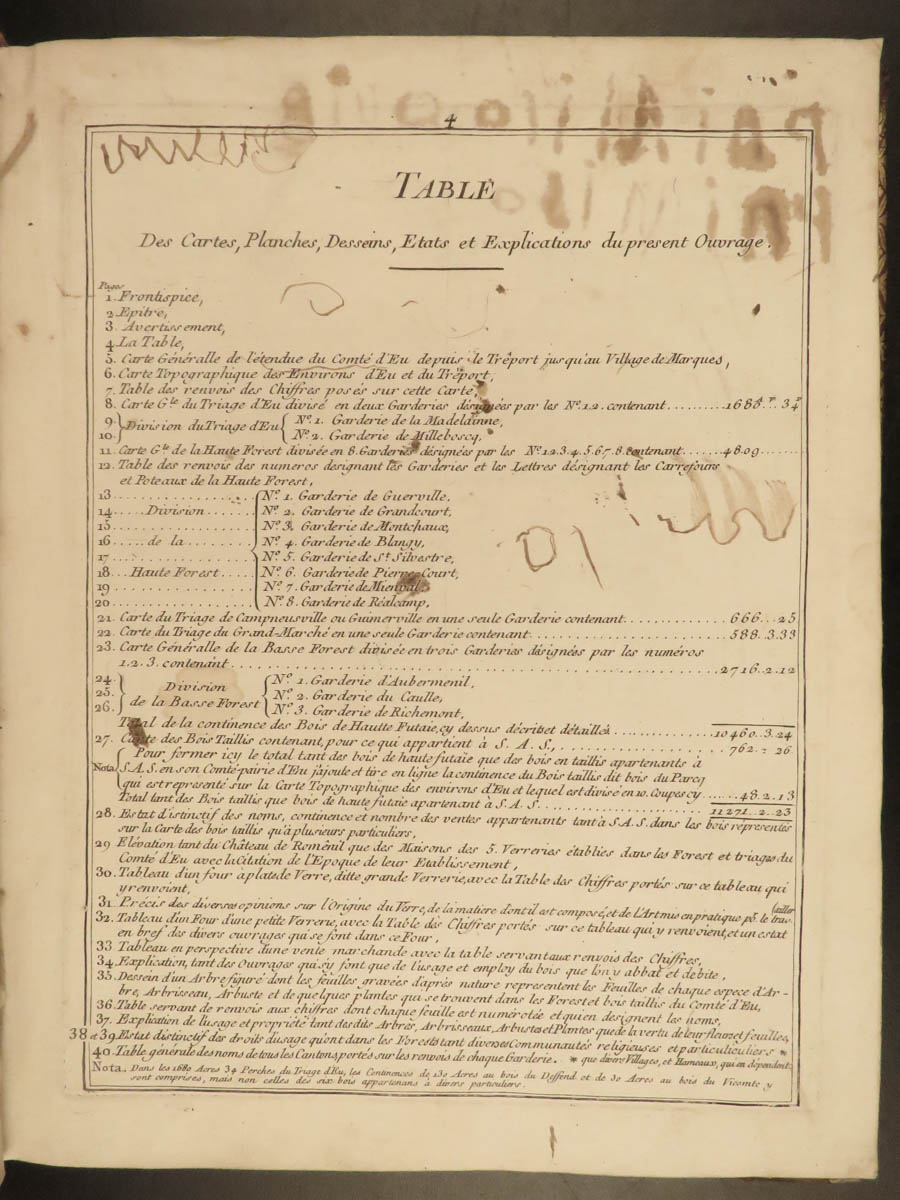 4
TABLE
Des Cartes, Planches, Desseins, Etats et Explications du present Ouvrage.
Pages
1. Frontispice,
2. Epître,
3. Avertissement,
4. La Table,
5. Carte Généralle de l'étendue du Comté d'Eu depuis le Trêport jusqu'au Village de Marques,
6. Carte Topographique des Environs d'Eu et du Trêport,
7. Table des renvois des Chiffres posés sur cette Carte,
8. Carte Gle du Triage d'Eu divisé en deux Garderies désignées par les No. 1.2. contenant
9. Division du Triage d'Eu No. 1. Garderie de la Madelainne,
10. No. 2. Garderie de Milleboscq,
11. Carte Gle de la Haute Forest divisée en 8. Garderies désignées par les No. 1.2.3.4.5.6.7.8. contenant 4809
12. Table des renvois des numeros designant les Garderies et les Lettres désignant les Carrefours
et Poteaux de la Haute Forest,
13 No. 1. Garderie de Guerville,
14 Division No. 2. Garderie de Grandcourt,
15 No. 3. Garderie de Montchaux,
16 de la No. 4. Garderie de Blangy,
17 No. 5. Garderie de St. Silvestre,
18 Haute Forest No. 6. Garderie de Pierre-Court,
19 No. 7. Garderie de Mienval
20 No. 8. Garderie de Réalcamp,
21. Carte du Triage de Campneusville ou Guimerville en une seule Garderie contenant 666..25
22. Carte du Triage du Grand-Marché en une seule Garderie contenant 588..3.33
23. Carte Généralle de la Basse Forest divisée en trois Garderies désignées par les numéros
1.2.3. contenant 2716..2.12
24. No. 1. Garderie d'Aubermenil,
25. Division No. 2. Garderie du Caulle,
26. de la Basse Forest No. 3. Garderie de Richemont,
Total de la continence des Bois de Hautte Futaie, cy dessus décrits et détaillés 10460..3.24
27. Carte des Bois Taillis contenant, pour ce qui appartient à S. A. S., 762.. 26
Nota Pour former icy le total tant des bois de haute futaïe que des bois en taillis apartenants à
S.A.S. en son Comté-pairie d'Eu j'ajoute et tire en ligne la continence du Bois taillis dit bois du Parcq
qui est representé sur la Carte Topographique des environs d'Eu et lequel est divisé en 10. Coupes cy 48.2.13
Total tant des Bois taillis que bois de haute futaïe apartenant à S.A.S. 11271..2..23
28. Estat distinctif des noms, continence et nombre des ventes appartenants tant à S.A.S. dans les bois répresentés
sur la Carte des bois taillis qu'à plusieurs particuliers,
29 Elévation tant du Château de Romênil que des Maisons des 5. Verreries établies dans les Forest et triages du
Comté d'Eu avec la Citation de l'Epoque de leur Etablissement,
30. Tableau d'un four à plats de Verre, ditte grande Verrerie, avec la Table des Chiffres portés sur ce tableau qui
y renvoient,
31. Précis des diverses opinions sur l'Origine du Verre, de la matière dont il est composé, et de l'Art mis en pratique pr. le travailler
32. Tableau d'un Four d'une petite Verrerie, avec la Table des Chiffres portés sur ce tableau qui y renvoient, et un estat
en bref des divers ouvrages qui se font dans ce Four,
33 Tableau en perspective d'une vente marchande avec la table servant aux renvois des Chiffres,
34. Explication, tant des Ouvrages qui s'y font que de l'usage et employ du bois que l'on y abbat et debite,
35. Dessein d'un Arbre figuré dont les feuilles gravées d'après nature representent les Feuilles de chaque espece d'Ar-
bre, Arbrisseau, Arbuste et de quelques plantes qui se trouvent dans les Forest et bois taillis du Comté d'Eu,
36. Table servant de renvois aux chiffres dont chaque feuille est numérotée et qui en designent les noms,
37. Explication de l'usage et propriété tant des dits Arbres, Arbrisseaux, Arbustes et Plantes que de la vertu de leur fleur et feuilles,
38 et 39. Estat distinctif des droits d'usage qu'ont dans les Forests tant diverses Communautés religieuses et particuliculiers *
40. Table générale des noms de tous les Cantons, portés sur les renvois de chaque Garderie. * que divers Villages, et Hameaux, qui en dépendent.
Nota. Dans les 1680 Acres 34 Perches du Triage d'Eu, les Continences de 130 Acres au bois du Deffend et de 30 Acres au bois du Vicomte y
sont comprises, mais non celles des six bois appartenans à divers particuliers.